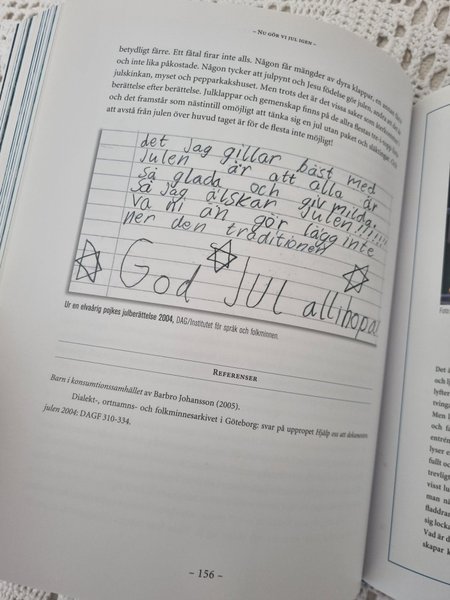 – Nu gör vi jul igen –
betydligt färre. Ett fåtal firar inte alls. Någon får mängder av dyra klappar, en annan färre
och inte lika påkostade. Någon tycker att julpynt och Jesu födelse gör julen, andra att det
julskinkan, myset och pepparkakshuset. Men trots det är det vissa saker som återkommer
berättelse efter berättelse. Julklappar och gemenskap finns på de allra flestas
och det framstår som nästintill omöjligt att tänka sig en jul utan paket och släktingar. Och
att avstå från julen över huvud taget är för de flesta inte möjligt!
det jag gillar bäst med
Julen är att alla är
så glada och giv milda
så jag älskar julen!!!!!!
Va ni än gör lägg inte
ner den traditionen
God JUL allihopa
Ur en elvaårig pojkes julberättelse 2004, DAG/Institutet för språk och folkminnen.
Referenser
Barn i konsumtionssamhället av Barbro Johansson (2005).
Dialekt-, ortnamns- och folkminnesarkivet i Göteborg: svar på uppropet Hjälp oss att dokumentera
julen 2004: DAGF 310-334.
– 156 –
Foto
Det ä
och lj
lyfter
tving
Men
och f
entré
lyser e
fullt oc
trevlig
visst lu
man nä
fladdra
sig locka
Vad är d
skapar k